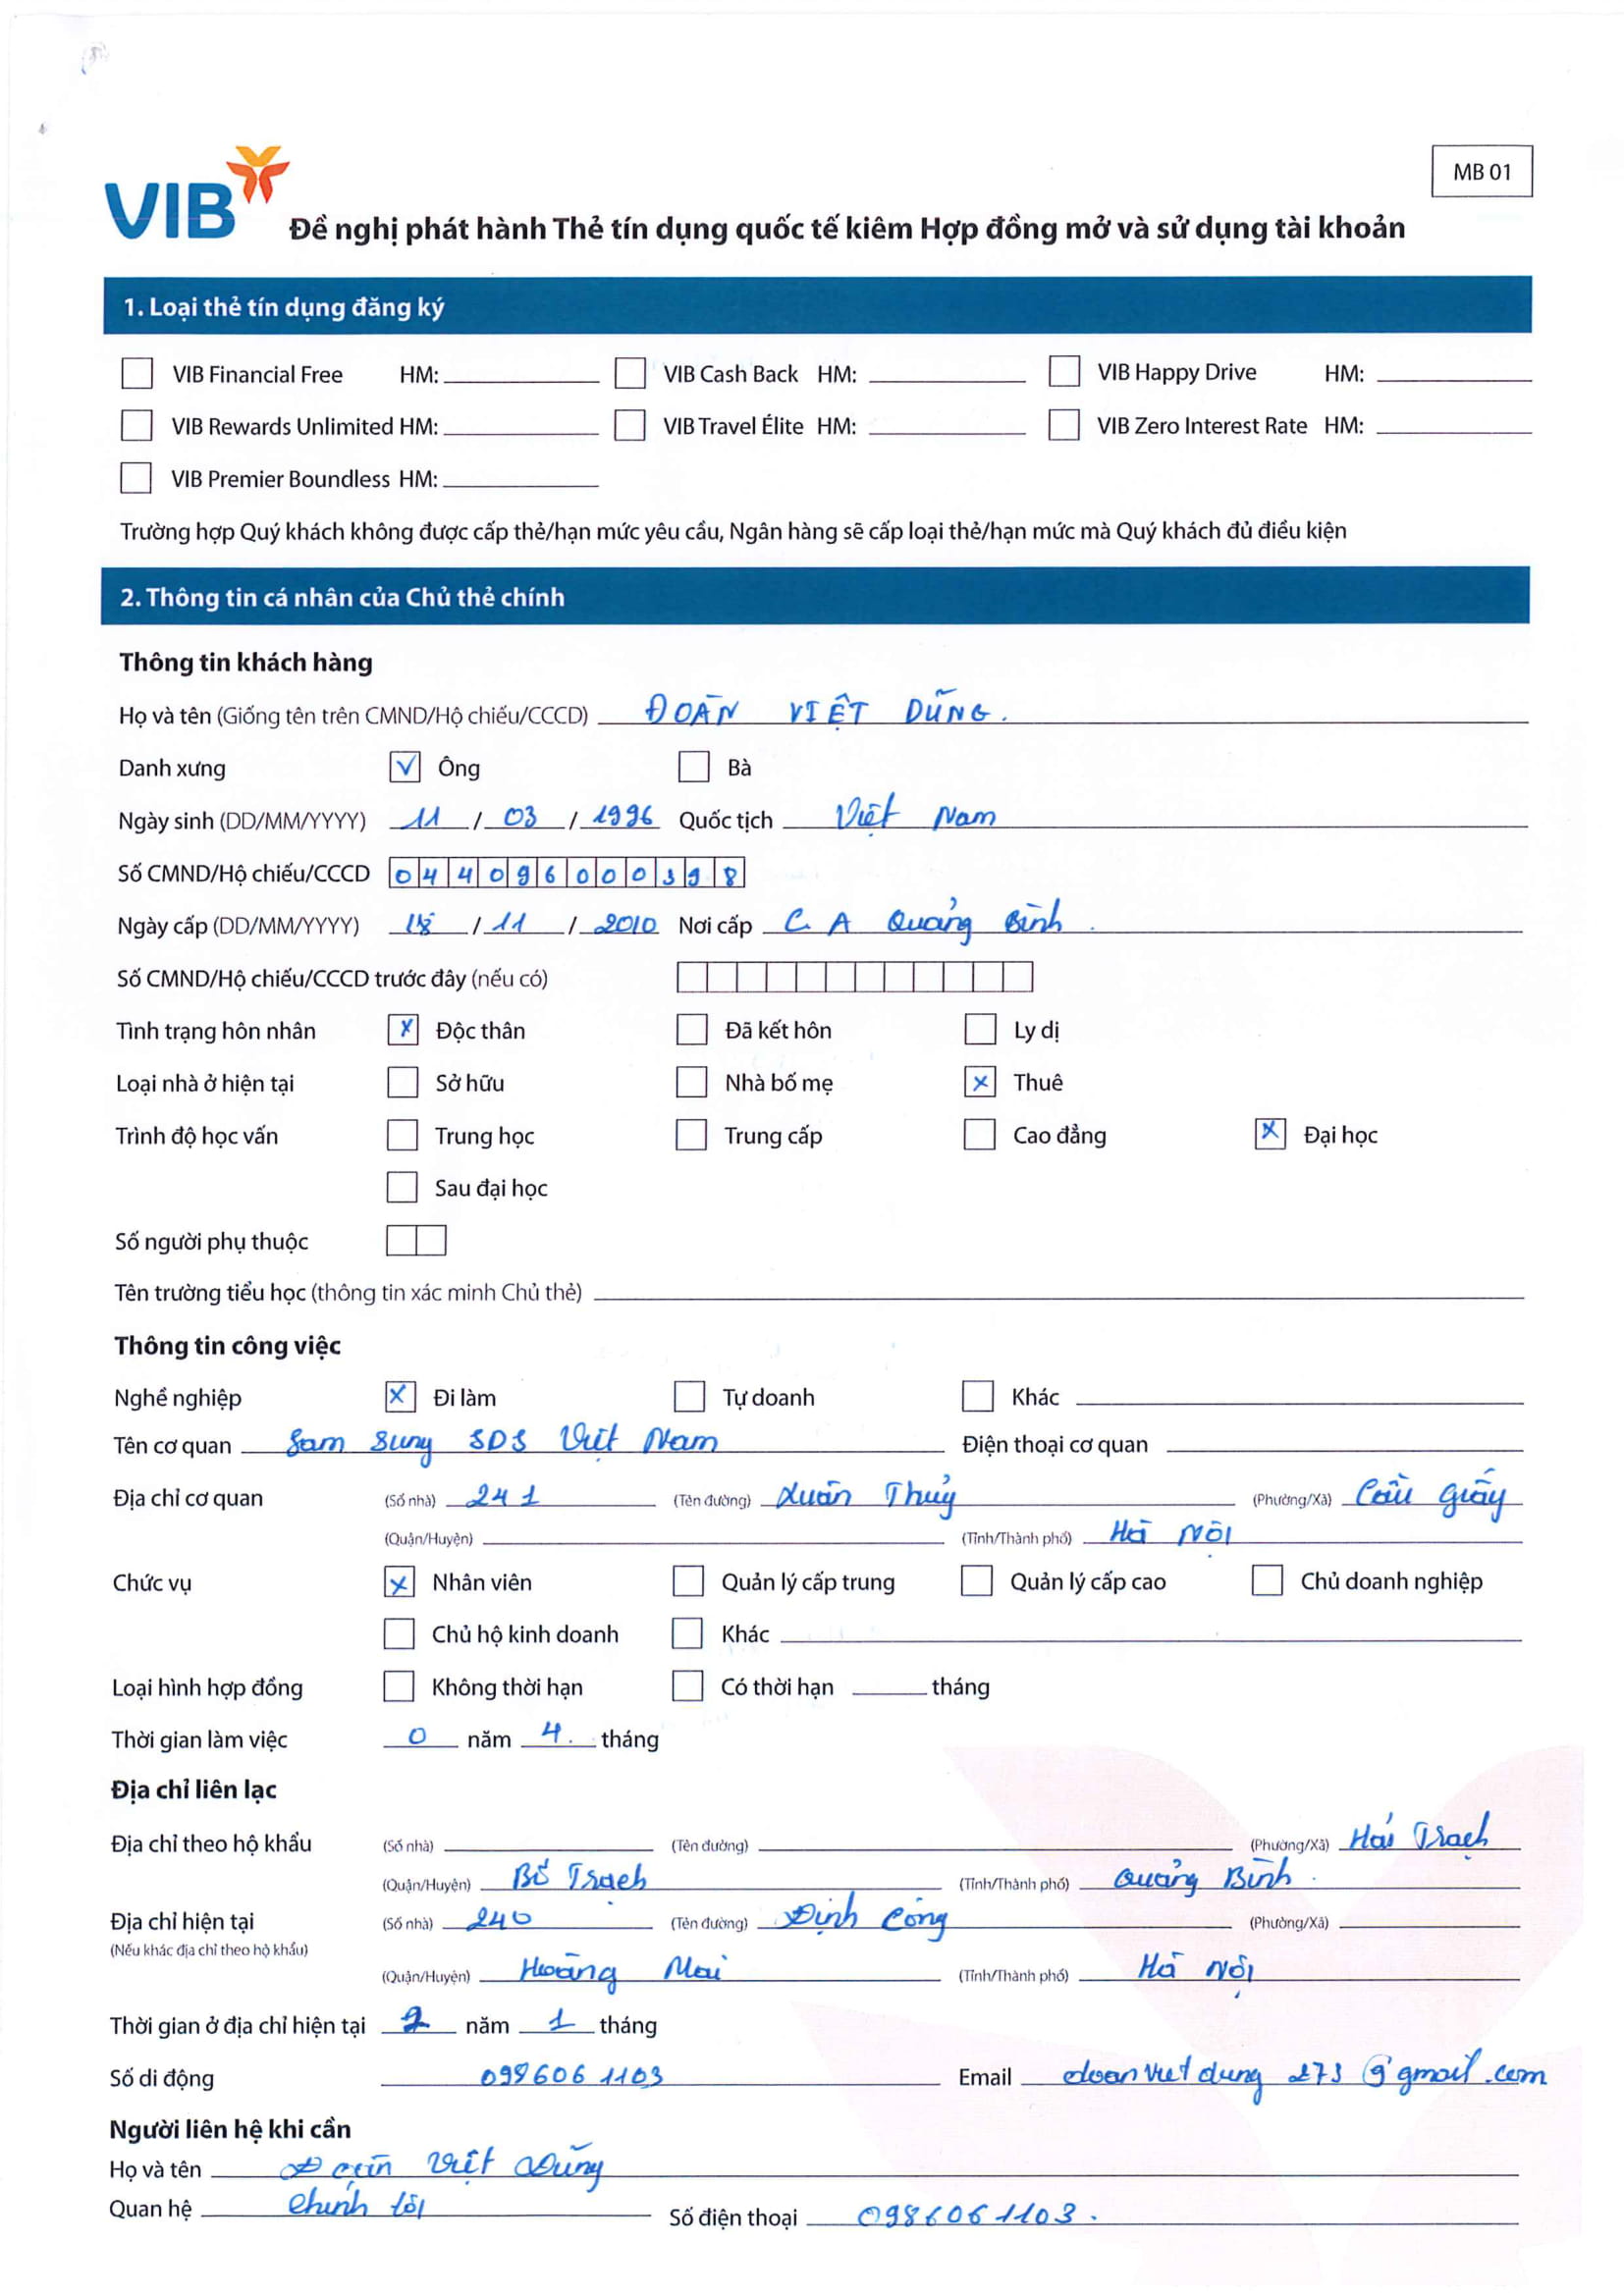 MB 01
VIB
Đề nghị phát hành Thẻ tín dụng quốc tế kiêm Hợp đồng mở và sử dụng tài khoản
1. Loại thẻ tín dụng đăng ký
VIB Financial Free HM: VIB Cash Back HM: VIB Happy Drive HM:
VIB Rewards Unlimited HM: VIB Travel Élite HM: VIB Zero Interest Rate HM:
VIB Premier Boundless HM:
Trường hợp Quý khách không được cấp thẻ/hạn mức yêu cầu, Ngân hàng sẽ cấp loại thẻ/hạn mức mà Quý khách đủ điều kiện
2. Thông tin cá nhân của Chủ thẻ chính
Thông tin khách hàng
Họ và tên (Giống tên trên CMND/Hộ chiếu/CCCD) ĐOÀN VIỆT DŨNG.
Danh xưng Ông Bà
Ngày sinh (DD/MM/YYYY) 11 / 03 / 1996 Quốc tịch Việt Nam
Số CMND/Hộ chiếu/CCCD 044096000398
Ngày cấp (DD/MM/YYYY) 18 / 11 / 2010 Nơi cấp C. A Quảng Bình.
Số CMND/Hộ chiếu/CCCD trước đây (nếu có)
Tình trạng hôn nhân x Độc thân Đã kết hôn Ly dị
Loại nhà ở hiện tại Sở hữu Nhà bố mẹ x Thuê
Trình độ học vấn Trung học Trung cấp Cao đẳng x Đại học
Sau đại học
Số người phụ thuộc
Tên trường tiểu học (thông tin xác minh Chủ thẻ)
Thông tin công việc
Nghề nghiệp x Đi làm Tự doanh Khác
Tên cơ quan Sam Sung SDS Việt Nam Điện thoại cơ quan
Địa chỉ cơ quan (Số nhà) 241 (Tên đường) Xuân Thuỷ (Phường/Xã) Cầu Giấy
(Quận/Huyện) (Tỉnh/Thành phố) Hà Nội
Chức vụ x Nhân viên Quản lý cấp trung Quản lý cấp cao Chủ doanh nghiệp
Chủ hộ kinh doanh Khác
Loại hình hợp đồng Không thời hạn Có thời hạn tháng
Thời gian làm việc 0 năm 4. tháng
Địa chỉ liên lạc
Địa chỉ theo hộ khẩu (Số nhà) (Tên đường) (Phường/Xã) Hải Trạch
(Quận/Huyện) Bố Trạch (Tỉnh/Thành phố) Quảng Bình.
Địa chỉ hiện tại (Số nhà) 240 (Tên đường) Định Công (Phường/Xã)
(Nếu khác địa chỉ theo hộ khẩu)
(Quận/Huyện) Hoàng Mai (Tỉnh/Thành phố) Hà Nội
Thời gian ở địa chỉ hiện tại 2 năm 1 tháng
Số di động 0986061103 Email doanvietdung273@gmail.com
Người liên hệ khi cần
Họ và tên Đoàn Việt Dũng
Quan hệ Chính tôi Số điện thoại 0986061103.